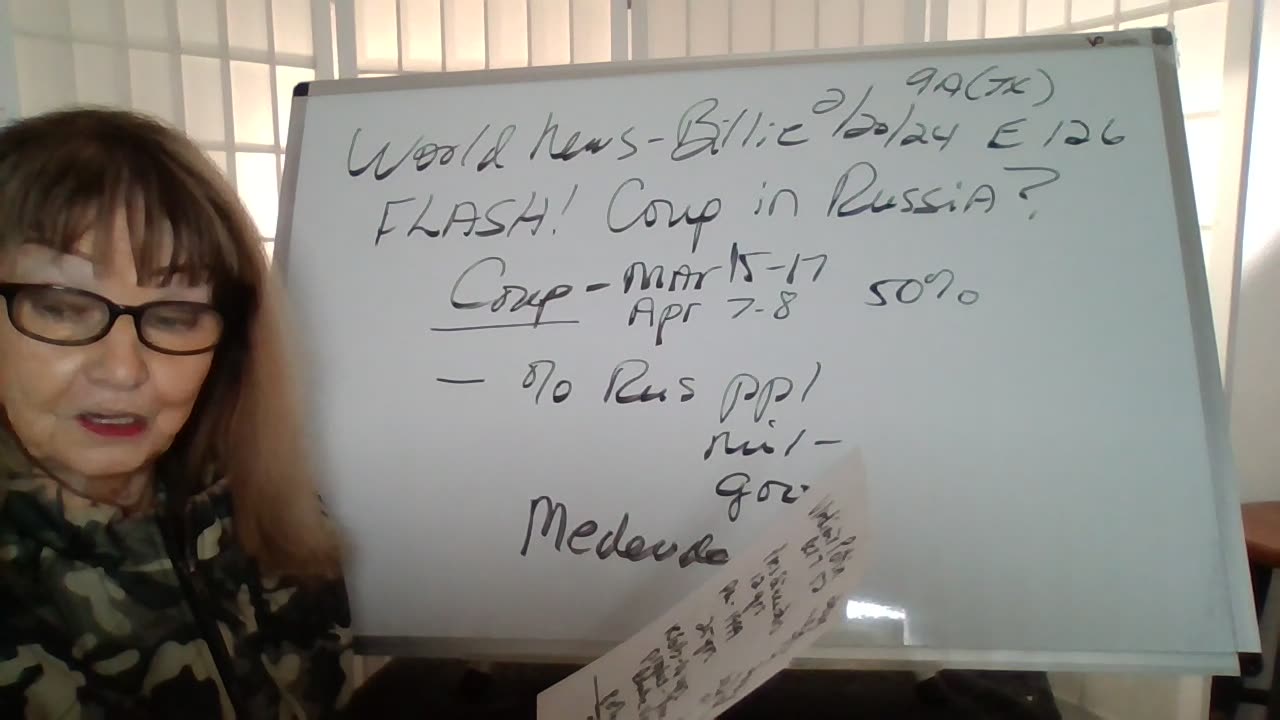 9A(TX)
World News-Billie 2/20/24 E 126
FLASH! Coup in Russia?
Coup - MAr 15-17
Apr 7-8 50%
- % Rus ppl
mil -
gov.
Medevde
25 yrs